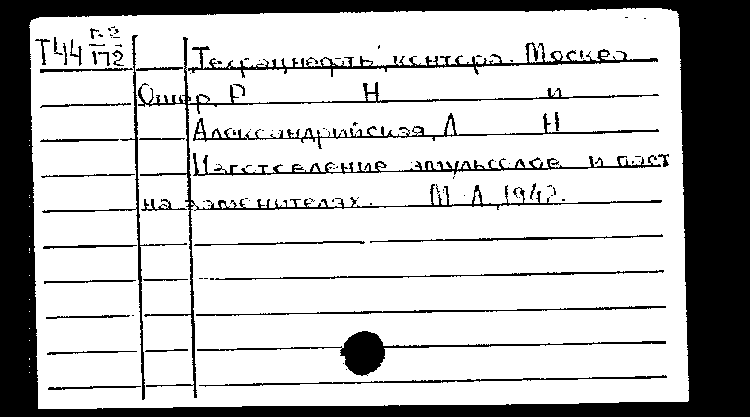 Т44 п.2
172
контора. Москва
Ошер, Р Н и
Александрийская, Л Н
Изготовление эмульсолов и паст
на заменителях. М Л, 1942.